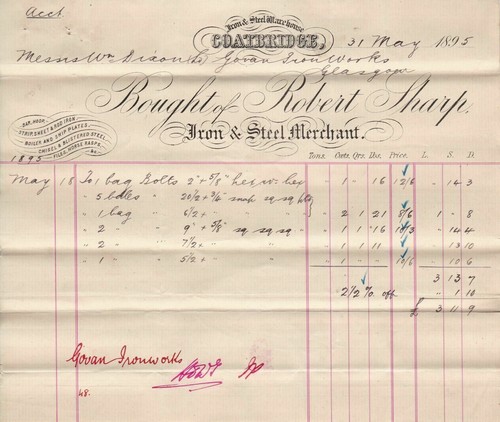 Acct
Iron & Steel Warehouse
COATBRIDGE,
31 May 1895
Messrs Wm Dixon Ld Govan Iron Works
Glasgow
Bought of Robert Sharp.
Iron & Steel Merchant.
BAR, HOOP,
STRIP, SHEET & ROD IRON.
BOILER AND SHIP PLATES.
CHISEL & BLISTERED STEEL
FILES, HORSE RASPS,
&c.
1895
Tons. Cwts. Qrs. Lbs. Price. L. S. D.
May 18 To 1 bag Bolts 2 + 5/8" hex 1 - 16 12/6 - 14 3
5 20/2 + 3/4" sq sq
1 bag 6/2 + " 2 1 21 8/6 1 - 8
2 " 9" + 5/8" sq sq sq 1 1 16 - 14 4
2 - " 7/2 + " " 1 1 11 " 13 10
- 1 - " 5/2 + " " 1 - - 10/6 - 10 6
3 13 7
2 1/2 % off " 1 10
£ 3 11 9
Govan Ironworks
48.